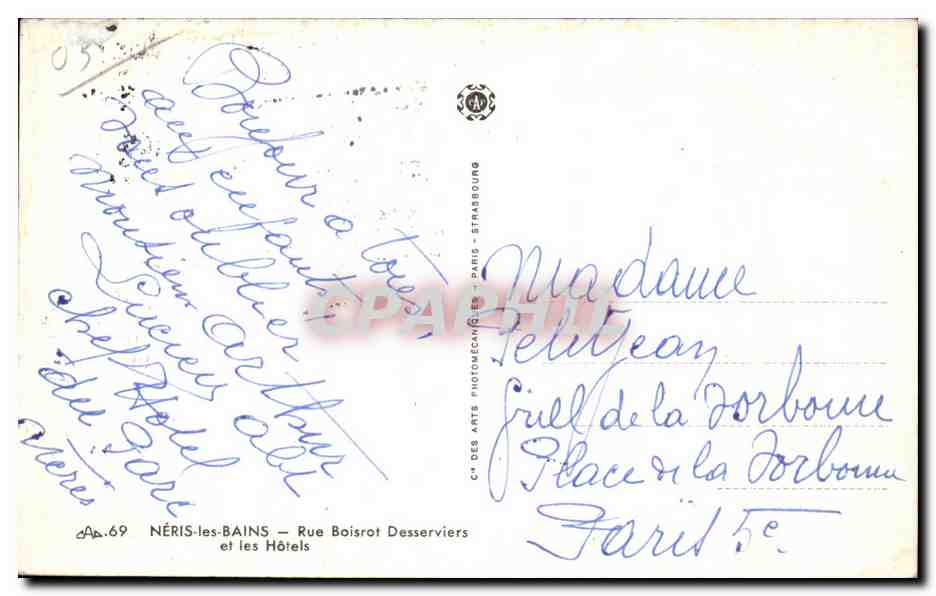 05
Bonjour à tous,
aux enfants
sans oublier
Monsieur Arthur
Lucien Abt
chef Hotel
du Parc
Néris
CAP.69 NÉRIS-les-BAINS — Rue Boisrot Desserviers
et les Hôtels
Cie DES ARTS PHOTOMÉCANIQUES - PARIS - STRASBOURG
CAP
CPARHII
Madame
Petitjean
Grill de la Sorbonne
Place de la Sorbonne
Paris 5e